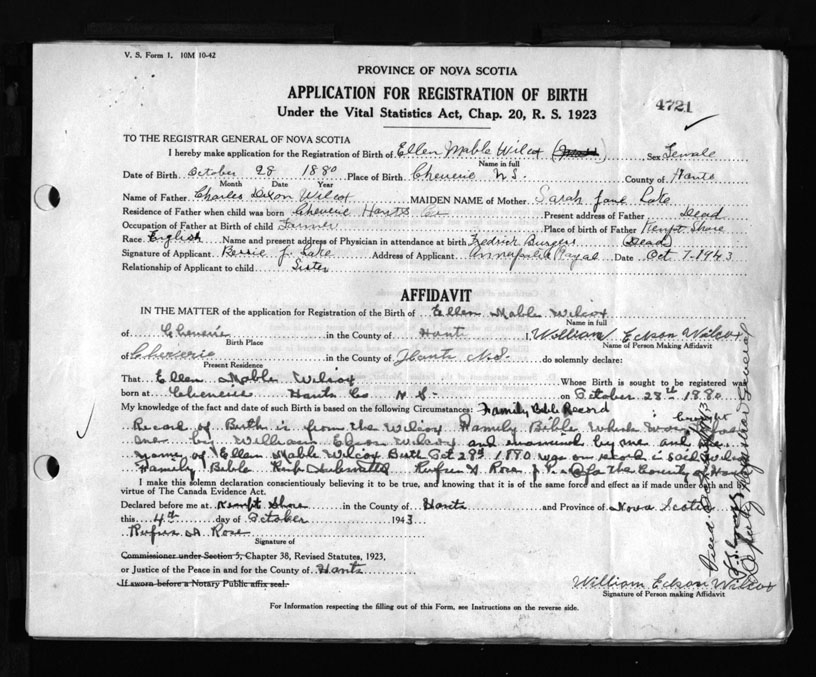 V. S. Form 1. 10M 10-42
PROVINCE OF NOVA SCOTIA
APPLICATION FOR REGISTRATION OF BIRTH
4721
Under the Vital Statistics Act, Chap. 20, R. S. 1923
TO THE REGISTRAR GENERAL OF NOVA SCOTIA
I hereby make application for the Registration of Birth of Ellen Mable Wilcox Sex Female
Name in full
Date of Birth October 28 1880 Place of Birth Cheverie N.S. County of Hants
Month Date Year
Name of Father Charles Dixon Wilcox MAIDEN NAME of Mother Sarah Jane Lake
Residence of Father when child was born Cheverie Hants Co Present address of Father Dead
Occupation of Father at Birth of child Farmer Place of birth of Father Kempt Shore
Race English Name and present address of Physician in attendance at birth Fedrick Burgess (Dead)
Signature of Applicant J. Lake Address of Applicant Annapolis Royal Date Oct 7-1943
Relationship of Applicant to child Sister
AFFIDAVIT
IN THE MATTER of the application for Registration of the Birth of Ellen Mable Wilcox
Name in full
of Cheverie in the County of Hants I, William Eckson Wilcox
Birth Place Name of Person Making Affidavit
of Cheverie in the County of Hants N.S. do solemnly declare:
Present Residence
That Ellen Mable Wilcox Whose Birth is sought to be registered was
born at Cheverie Hants Co N S- on October 28th 1880
My knowledge of the fact and date of such Birth is based on the following Circumstances: Family Bible Record
Record of Birth is from the Wilcox Family Bible which was brought
by William Wilcox and examined by me and
name of Ellen Mable Wilcox Birth Oct 28th 1880 was on record in said Wilcox
Family Bible Rufus A. Rose J.P. for the County of Hants
I make this solemn declaration conscientiously believing it to be true, and knowing that it is of the same force and effect as if made under oath and by
virtue of The Canada Evidence Act.
Declared before me at Kempt Shore in the County of Hants and Province of Nova Scotia
this 4th day of October 1943
Rufus A. Rose
Signature of
Commissioner under Section 5, Chapter 38, Revised Statutes, 1923,
or Justice of the Peace in and for the County of Hants
If sworn before a Notary Public affix seal.
William Eckson Wilcox
Signature of Person making Affidavit
For Information respecting the filling out of this Form, see Instructions on the reverse side.
Deputy Registrar General